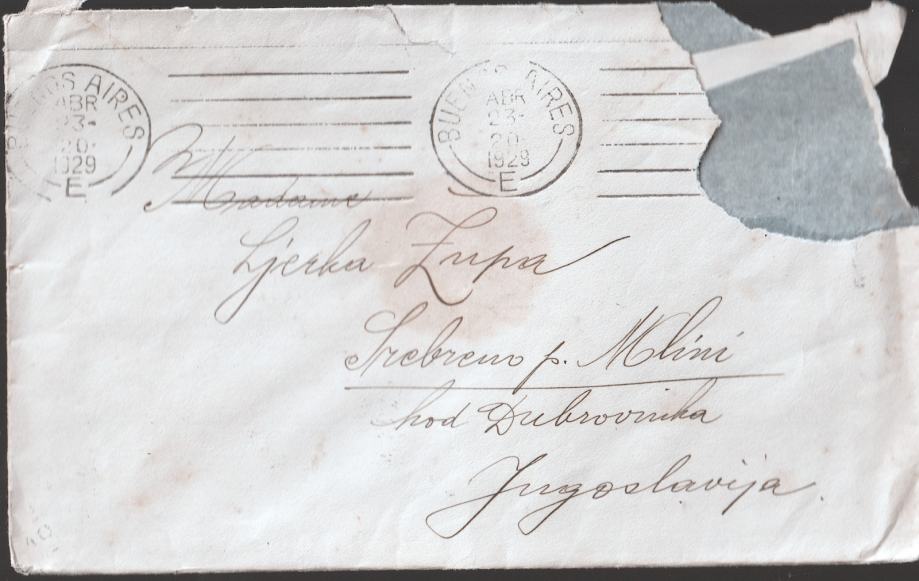 BUENOS AIRES
ABR
23-
20-
1929
E
BUENOS AIRES
ABR
23-
20-
1929
E
Madame
Ljerka Zupa
Srebreno p. Mlini
kod Dubrovnika
Jugoslavija.